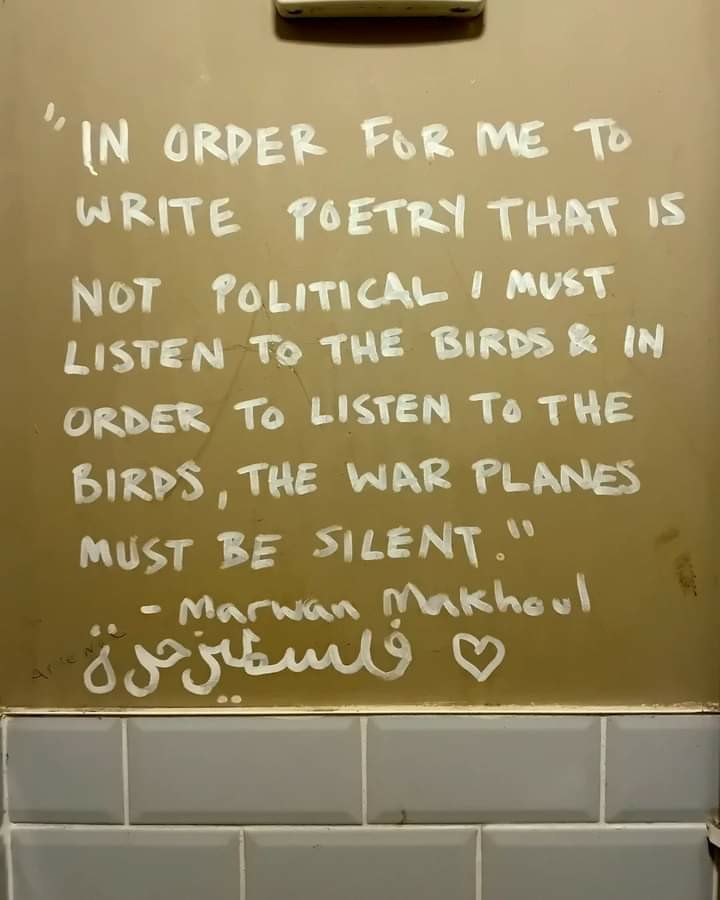 "IN ORDER FOR ME TO
WRITE POETRY THAT IS
NOT POLITICAL I MUST
LISTEN TO THE BIRDS & IN
ORDER TO LISTEN TO THE
BIRDS, THE WAR PLANES
MUST BE SILENT."
- Marwan Makhoul
فلسطين حرة ♡